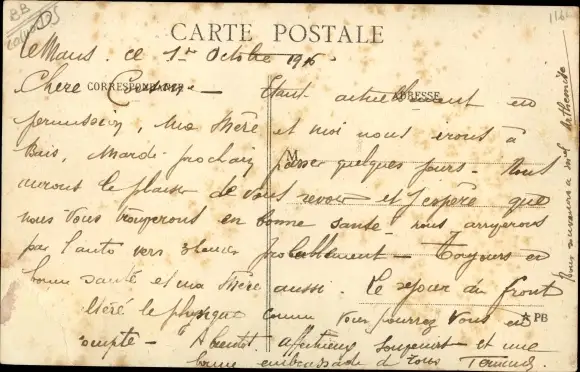 BB
CARTE POSTALE
le Mans, ce 1er Octobre 1916
CORRESPONDANCE
ADRESSE
Chère Cousine — Etant actuellement en
permission, Ma Mère et moi nous irons à
Bais, Mardi prochain passer quelques jours — Nous
M
aurons le plaisir de vous revoir et j'espère que
nous vous trouverons en bonne santé. nous arriverons
par l'auto vers 3 heures probablement — Toujours en
bonne santé et ma Mère aussi. Le séjour du front
le physique comme vous pourrez vous en
PB
compte — A bientôt. affectueux souvenirs et une
bonne embrassade de tous
souvenirs à